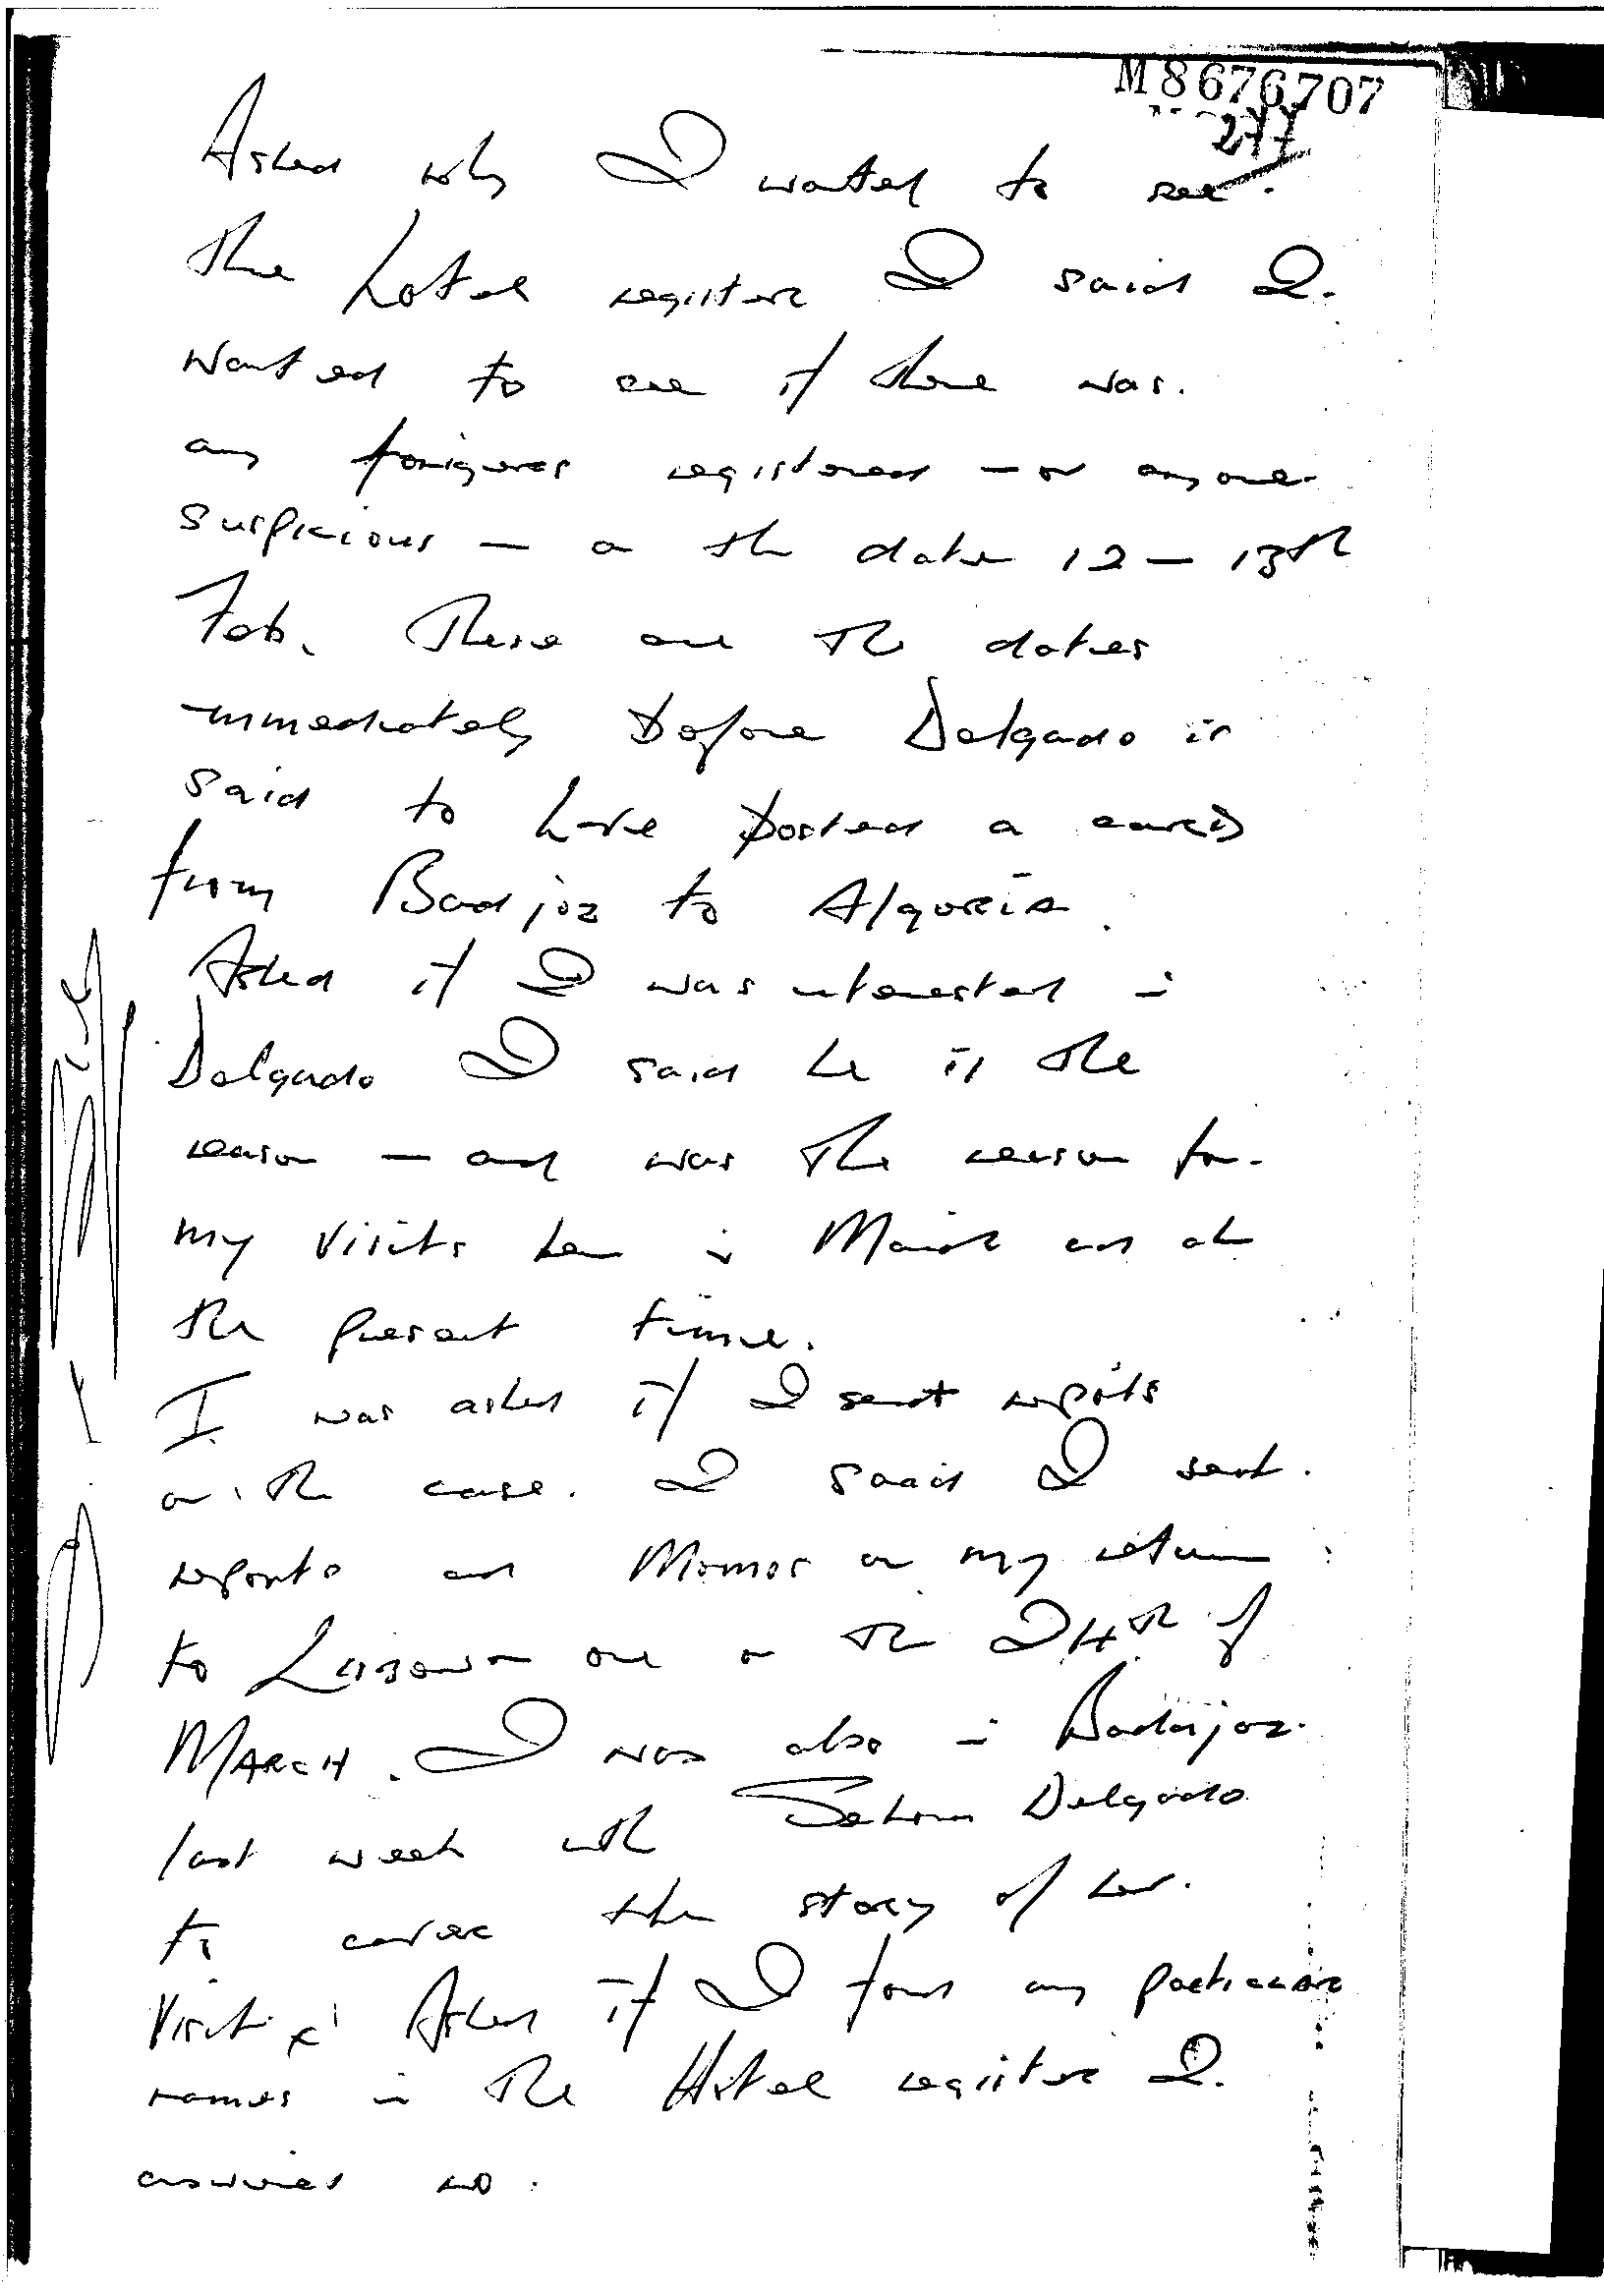 M8676707
277
Asked why I wanted to see
the hotel register I said I
wanted to see if there was
any foreigners registered — or anyone
suspicious — on the dates 12 — 13th
Feb. These are the dates
immediately before Delgado is
said to have posted a card
from Badjoz to Algeria.
Asked if I was interested in
Delgado I said he is the
reason — and was the reason for
my visits here in March and at
the present time.
I was asked if I sent reports
on the case. I said I sent
reports and Memos on my return
to Lisbon on the 24th of
MARCH. I was also in Badajoz
last week with Senora Delgado
to cover the story of her
Visit. Asked if I found any particular
names in the Hotel register I
answered no.